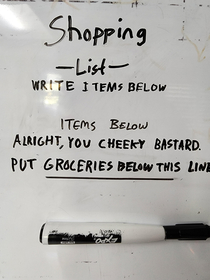 Shopping
-List-
WRITE ITEMS BELOW
ITEMS BELOW
ALRIGHT, YOU CHEEKY BASTARD.
PUT GROCERIES BELOW THIS LINE
EXPO